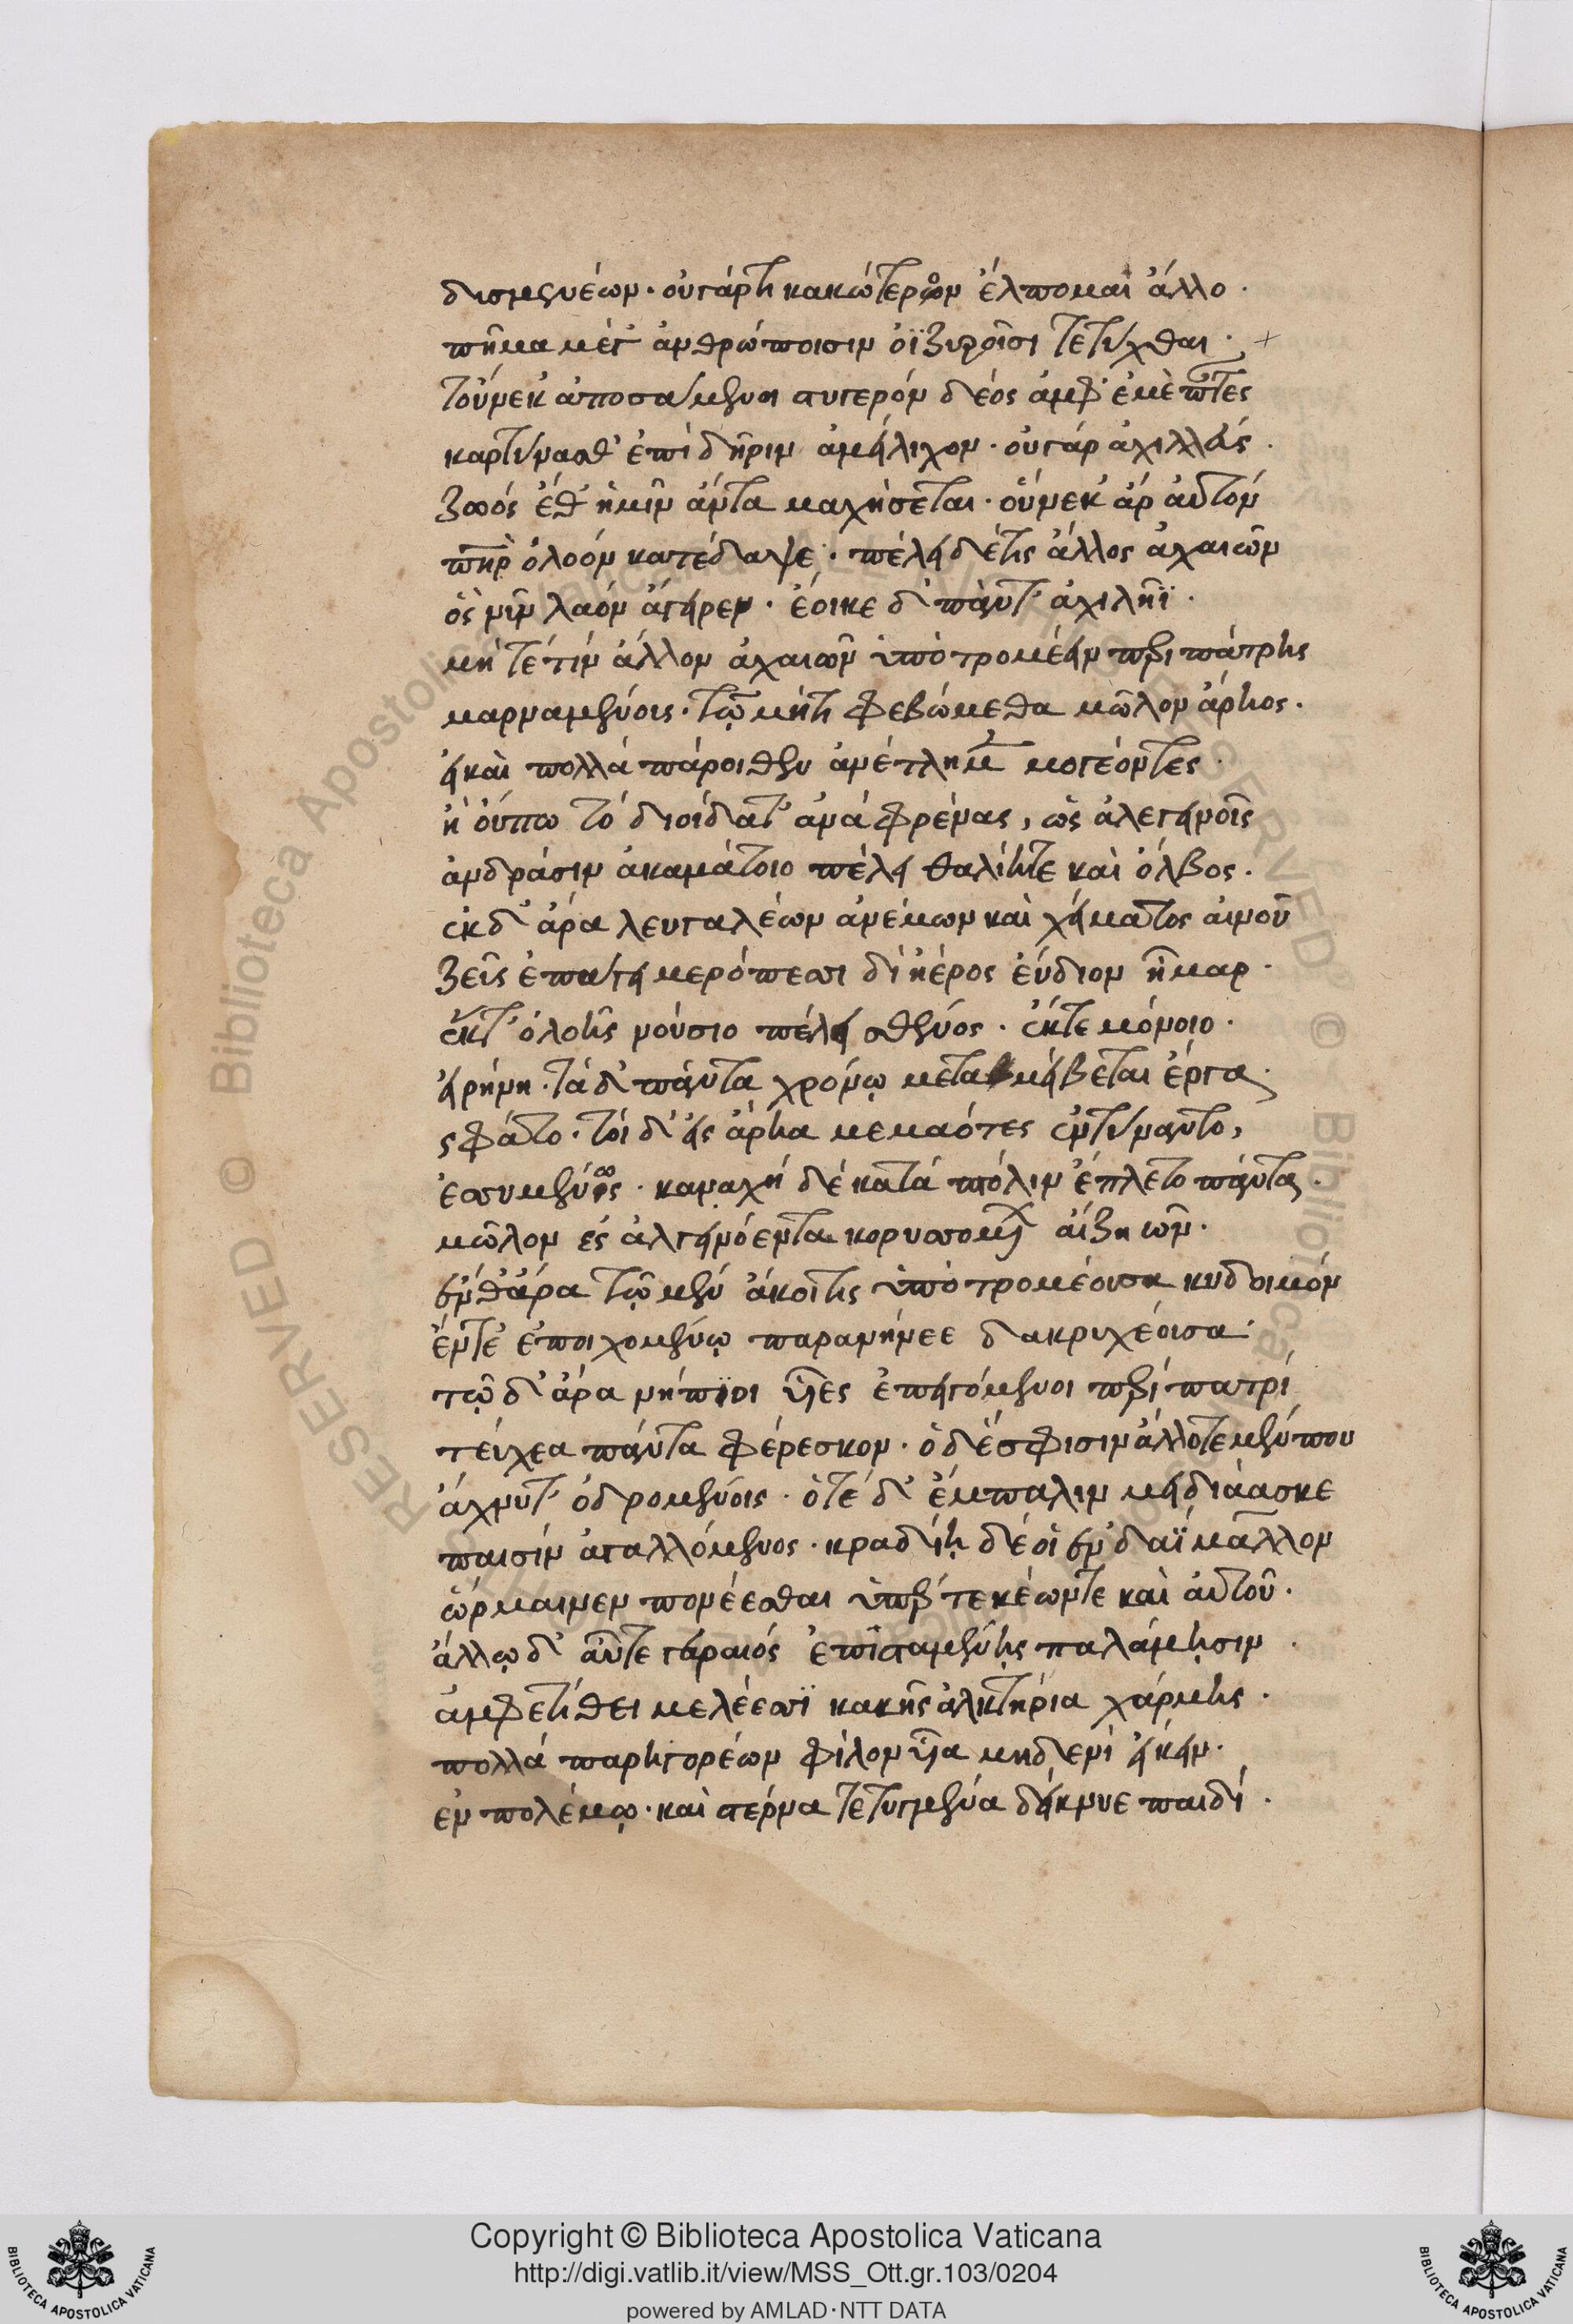 δυσμενέων· οὐ γάρ τι κακώτερον ἔλπομαι ἄλλο·
πῆμα μετ' ἀνθρώποισιν ὀϊζυροῖσι τετύχθαι·
τοὔνεκ' ἀπωσάμενοι στυγερὸν δέος ἀμφ' ἐμὲ πάντες
καρτύνασθ' ἐπὶ δῆριν ἀμείλιχον· οὐ γὰρ ἀχιλλεύς·
ζωὸς ἔθ' ἡμῖν ἄντα μαχήσεται· οὕνεκ' ἄρ αὐτὸν
πῦρ ὀλοὸν κατέδαψε· πέλει δέ τις ἄλλος ἀχαιῶν
ὃς νῦν λαὸν ἄγειρεν· ἔοικε δ' ἀχιλῆϊ·
μή τέ τιν ἄλλον ἀχαιῶν ὑποτρομέειν περὶ πάτρης
μαρναμένοις· τῷ μή τι φεβώμεθα μῶλον ἄρηος·
εἰ καὶ πολλὰ πάροιθεν ἀνέτλημεν μογέοντες·
ἢ οὔπω τό δ' οἴδατ' ἀνὰ φρένας, ὡς ἀλεγεινοῖς
ἀνδράσιν ἀκαμάτοιο πέλει θαλίη τε καὶ ὄλβος·
ἐκ δ' ἄρα λευγαλέων ἀνέμων καὶ χείματος αἰνοῦ
ζεὺς ἐπάγει μερόπεσσι δι' ἠέρος εὔδιον ἦμαρ·
ἔκ τ' ὀλοῆς νούσοιο πέλει σθένος· ἔκ τε μόνοιο·
εἰρήνη· τὰ δὲ πάντα χρόνῳ μεταμείβεται ἔργα·
ς φάτο· τοὶ δ' εἰς ἄρηα μεμαότες ἐντύναντο,
ἐσσυμένως· καναχὴ δὲ κατὰ πόλιν ἔπλετο πάντα·
μῶλον ἐς ἀλγεινόεντα κορυσσομένων αἰζηῶν·
ἔνθ' ἄρα τῷ μὲν ἄκοιτις ὑποτρομέουσα κυδοιμὸν
ἔντε' ἐποιχομένῳ παρανήνεε δακρυχέουσα·
τῷ δ' ἄρα νήπιοι υἷες ἐπειγόμενοι περὶ πατρὶ
τεύχεα πάντα φέρεσκον· ὁ δέ σφισιν ἄλλοτε μέν που
ἄχνυτ' ὀδρομένοις· ὁτὲ δ' ἔμπαλιν μειδιάασκε
παισὶν ἀγαλλόμενος· κραδίη δέ οἱ ἐν δαῒ μᾶλλον
ὥρμαινεν πονέεσθαι ὑπὲρ τεκέων τε καὶ αὐτοῦ·
ἄλλῳ δ' αὖτε γεραιὸς ἐπισταμένῃς παλάμῃσιν·
ἀμφετίθει μελέεσσι κακῆς ἀλκτήρια χάρμης·
πολλὰ παρηγορέων φίλον υἷα μηδενὶ εἴκειν·
ἐν πολέμῳ· καὶ στέρνα τετυγμένα δείκνυε παιδί·
Copyright © Biblioteca Apostolica Vaticana
http://digi.vatlib.it/view/MSS_Ott.gr.103/0204
powered by AMLAD·NTT DATA